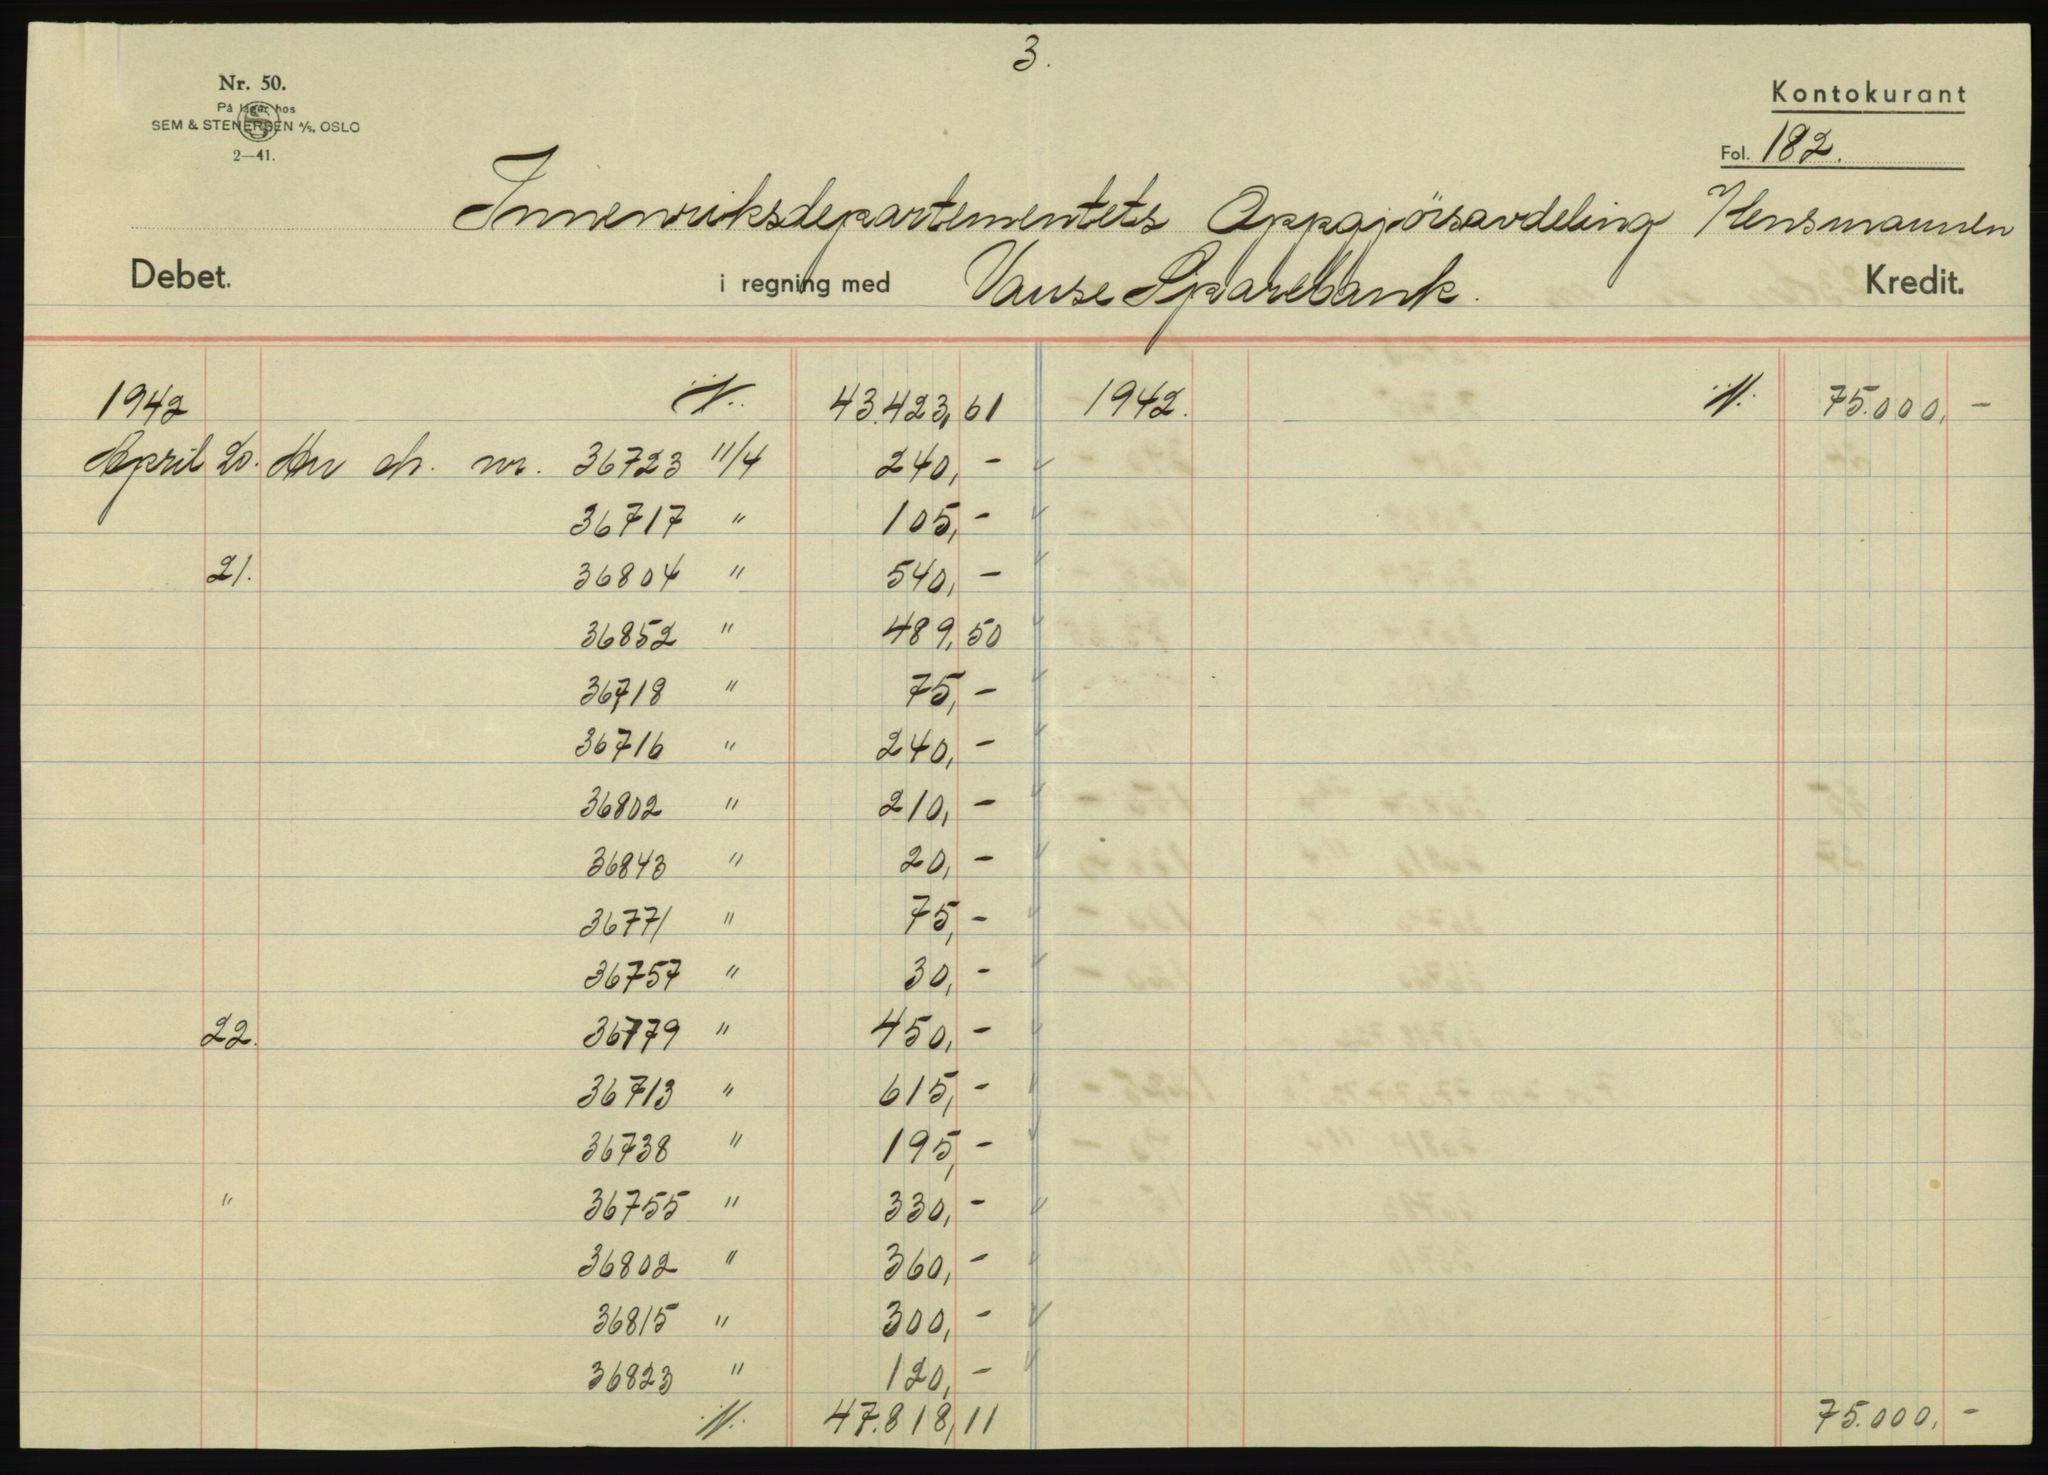 3.
Nr. 50.
På lager hos
SEM & STENERSEN A/S, OSLO
2—41.
Kontokurant
Fol. 182.
Innenriksdepartementets Oppgjörsavdeling Lensmannen
Debet. i regning med Vanse Sparebank. Kredit.
1942 43.423,61 1942. 75.000,-
April 20. An ch. nr. 36723 11/4 240,-
36717 " 105,-
21. 36804 " 540,-
36852 " 489,50
36718 " 75,-
36716 " 240,-
36802 " 210,-
36843 " 20,-
36771 " 75,-
36757 " 30,-
22. 36779 " 450,-
36713 " 615,-
36738 " 195,-
" 36755 " 330,-
36802 " 360,-
36815 " 300,-
36823 " 120,-
47.818,11 75.000,-